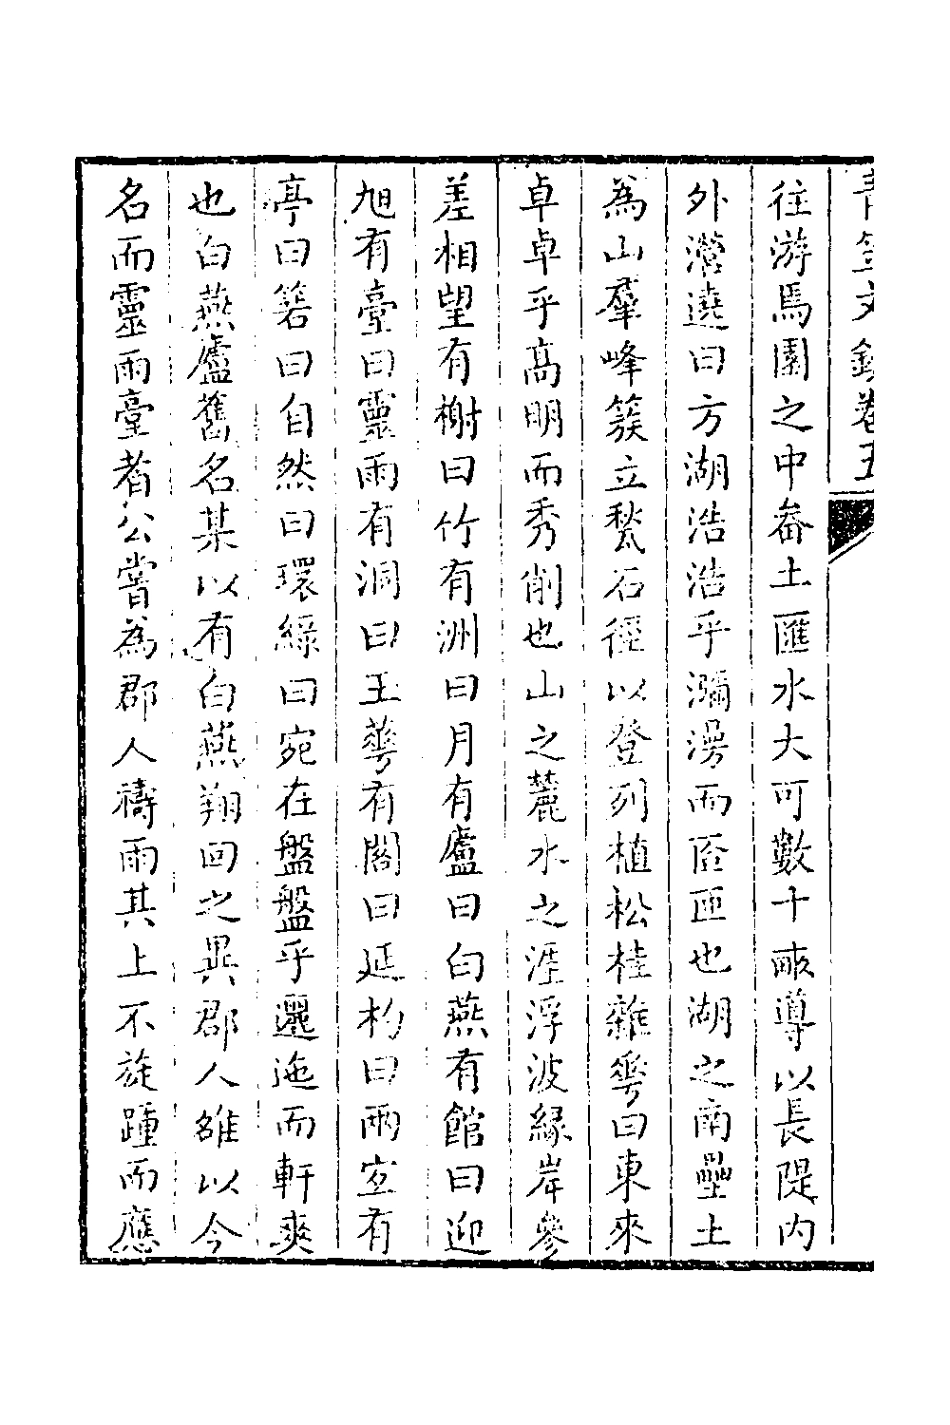 文鈔卷五
往游馬園之中畚土匯水大可數十畝導以長隄内
外瀠遶曰方湖浩浩乎瀰漫而匼匝也湖之南壘土
為山羣峰簇立甃石徑以登列植松桂雜蕚曰東來
卓卓乎高明而秀削也山之麓水之涯浮波緣岸參
差相望有榭曰竹有洲曰月有廬曰白燕有館曰迎
旭有臺曰靈雨有洞曰玉蕚有閣曰延杓曰雨宐有
亭曰箬曰自然曰環綠曰宛在盤盤乎邐迤而軒爽
也白燕廬舊名某以有白燕翔回之異郡人雖以今
名而靈雨臺者公嘗為郡人禱雨其上不旋踵而應